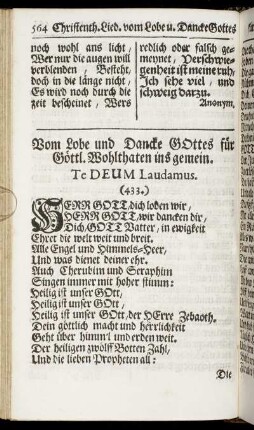 564 Christenth. Lied. vom Lobe u. Dancke Gottes
noch wohl ans licht,
Wer nur die augen will
verblenden, Besteht
doch in die länge nicht,
Es wird noch durch die
zeit bescheinet, Wers
redlich oder falsch ge-
meynet, Verschwie-
genheit ist meine ruh,
Ich sehe viel, und
schweig darzu.
Anonym.
Vom Lobe und Dancke GOttes für
Göttl. Wohlthaten ins gemein.
Te DEUM Laudamus.
(433.)
HERR GOTT, dich loben wir,
HERR GOTT, wir dancken dir,
Dich, GOTT Vatter, in ewigkeit
Ehret die welt weit und breit.
Alle Engel und Himmels-Heer,
Und was dienet deiner ehr.
Auch Cherubim und Seraphim
Singen immer mit hoher stimm:
Heilig ist unser GOtt,
Heilig ist unser GOtt,
Heilig ist unser GOtt, der HErre Zebaoth.
Dein göttlich macht und herrlichkeit
Geht über himm'l und erden weit.
Der heiligen zwölff Botten Zahl,
Und die lieben Propheten all:
Die